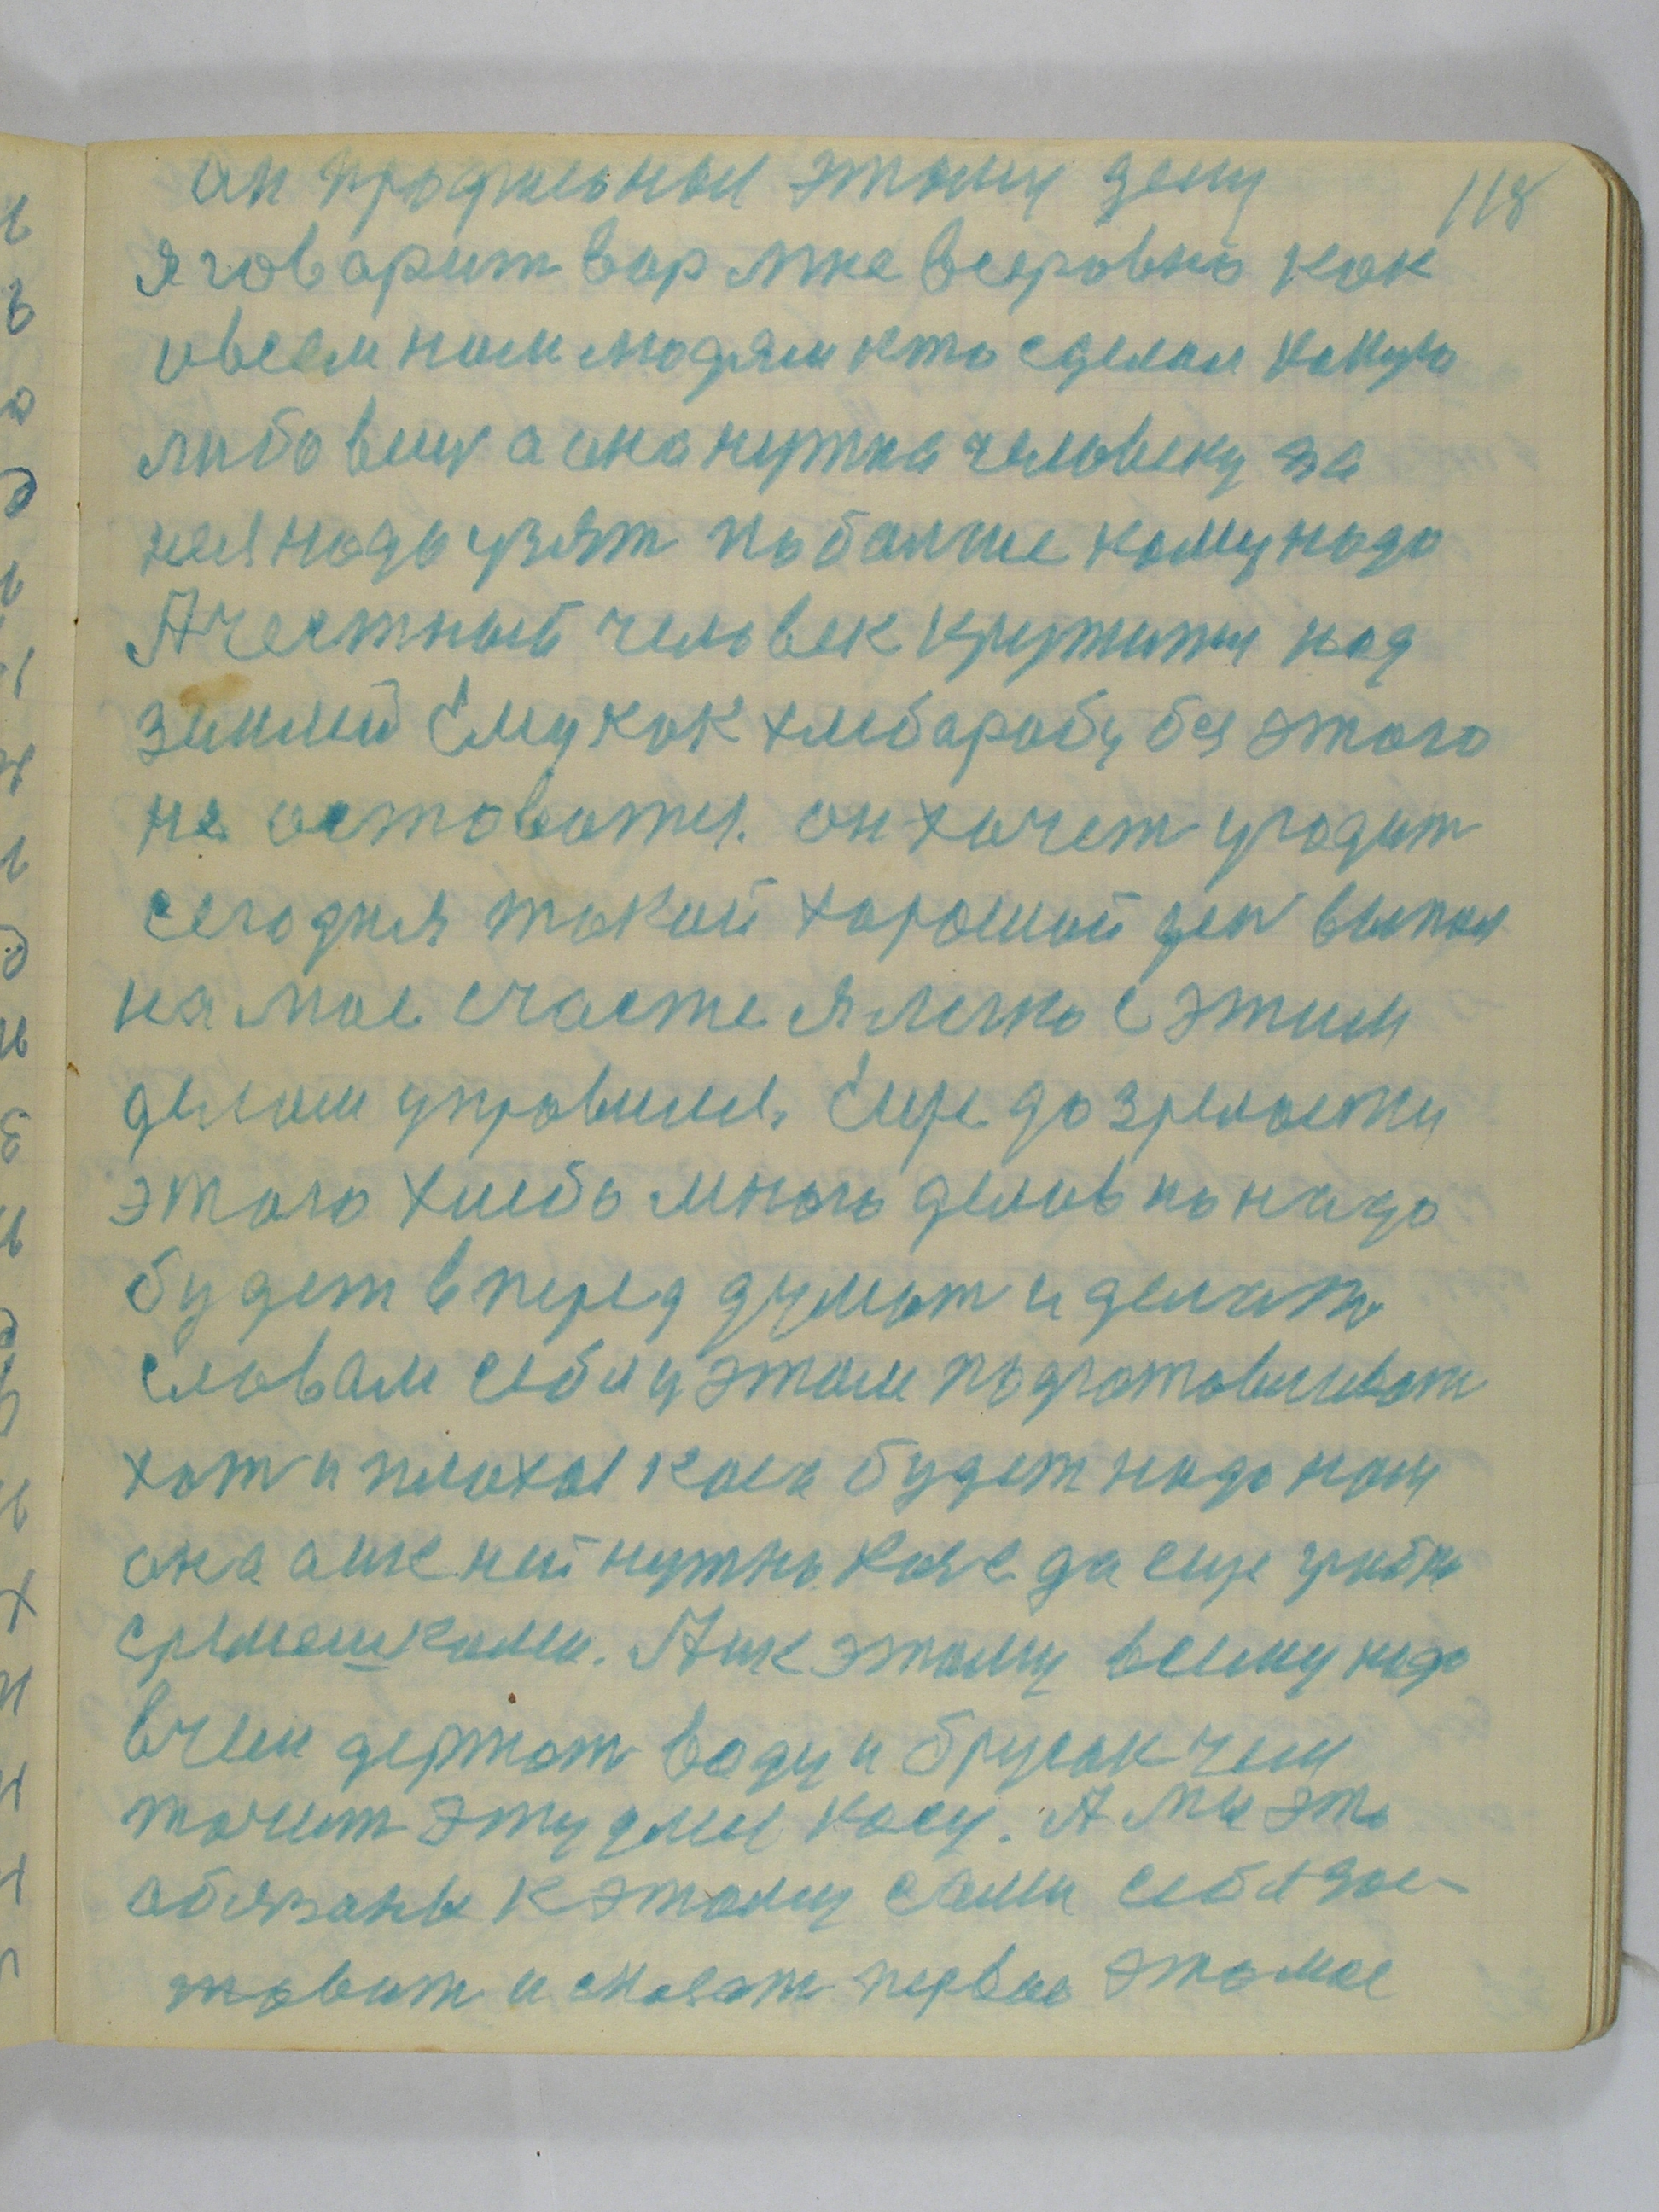 118
он этому делу
я говорит вор мне всеровно как
и всем нам людям кто сделал какую
либо вещ а она нужна человеку за
нея надо узят побалше кому надо
А честный человек кружится над
землей Ему как хлебаробу без этого
не остоватся. он хочет угодит
сегодня такой хороший ден выпал
на мое счасте я легко с этим
делом управился. Еще до зрелости
этого хлеба много делов но надо
будет вперед думат и делат
словам себя у этом подготовливат
хот и плохая коса будет надо нам
она а к ней нужно еще грабки
сремешками. А ик этому всему надо
в чем держат воду и брусак чем
точит эту косу. А мы это
обязаны к этому сами себя заг-
товит и сказат первое это мое